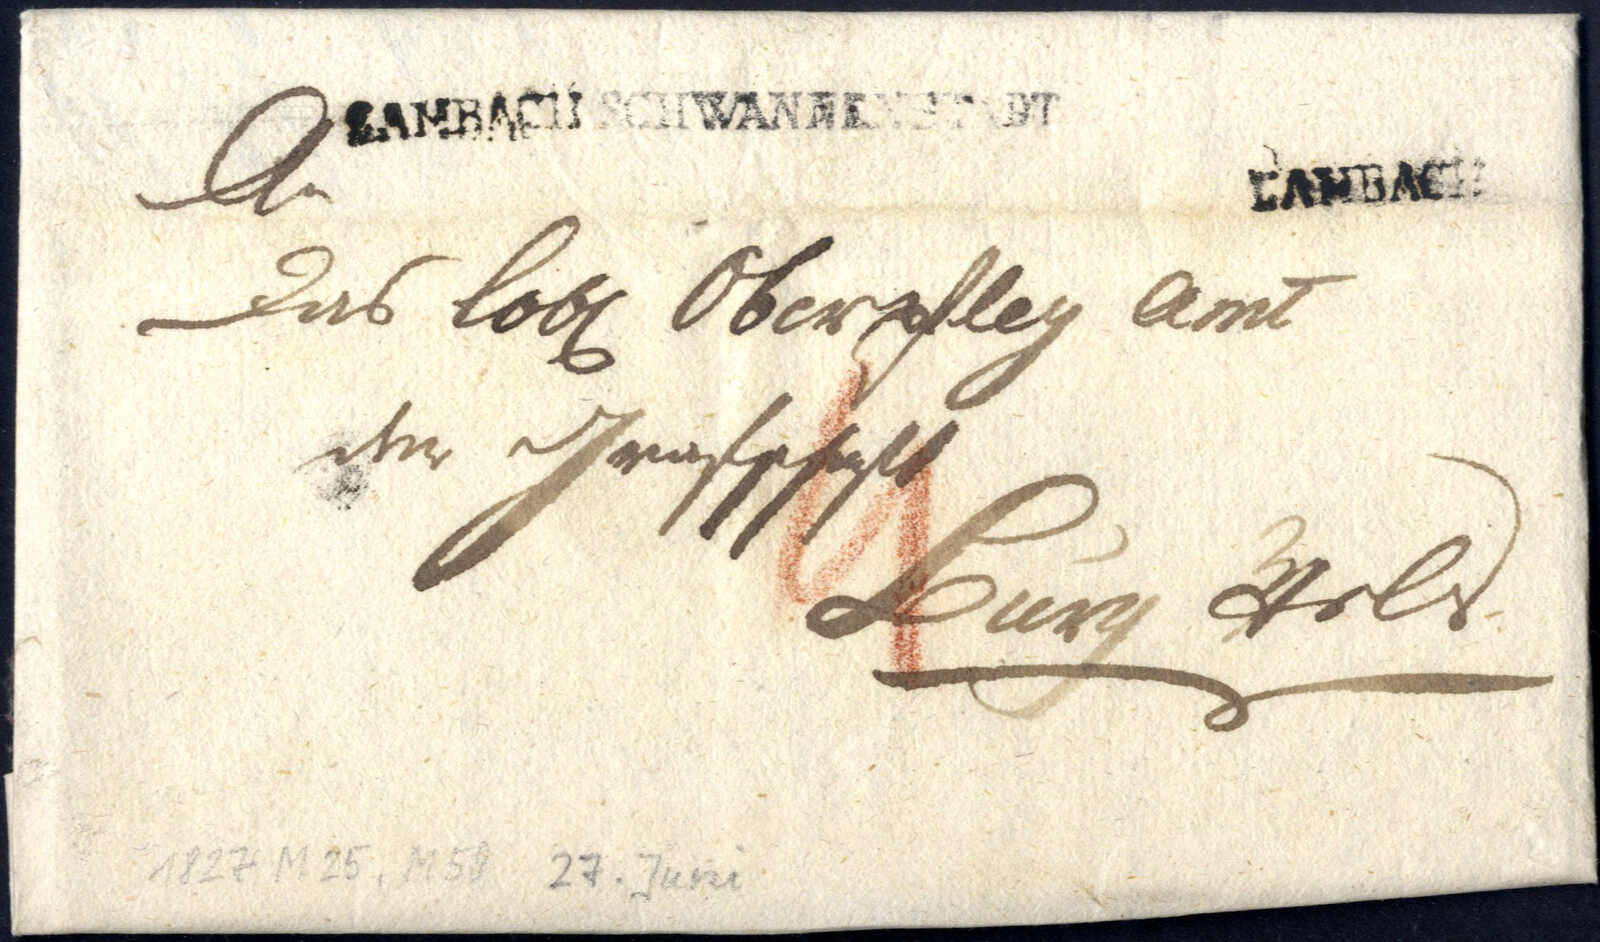 LAMBACH SCHWANENSTADT
LAMBACH
An
Das lobl Oberpfleg Amt
der Grafschaft
Burg Wels
4
1827 M 25, M 58 27. Juni